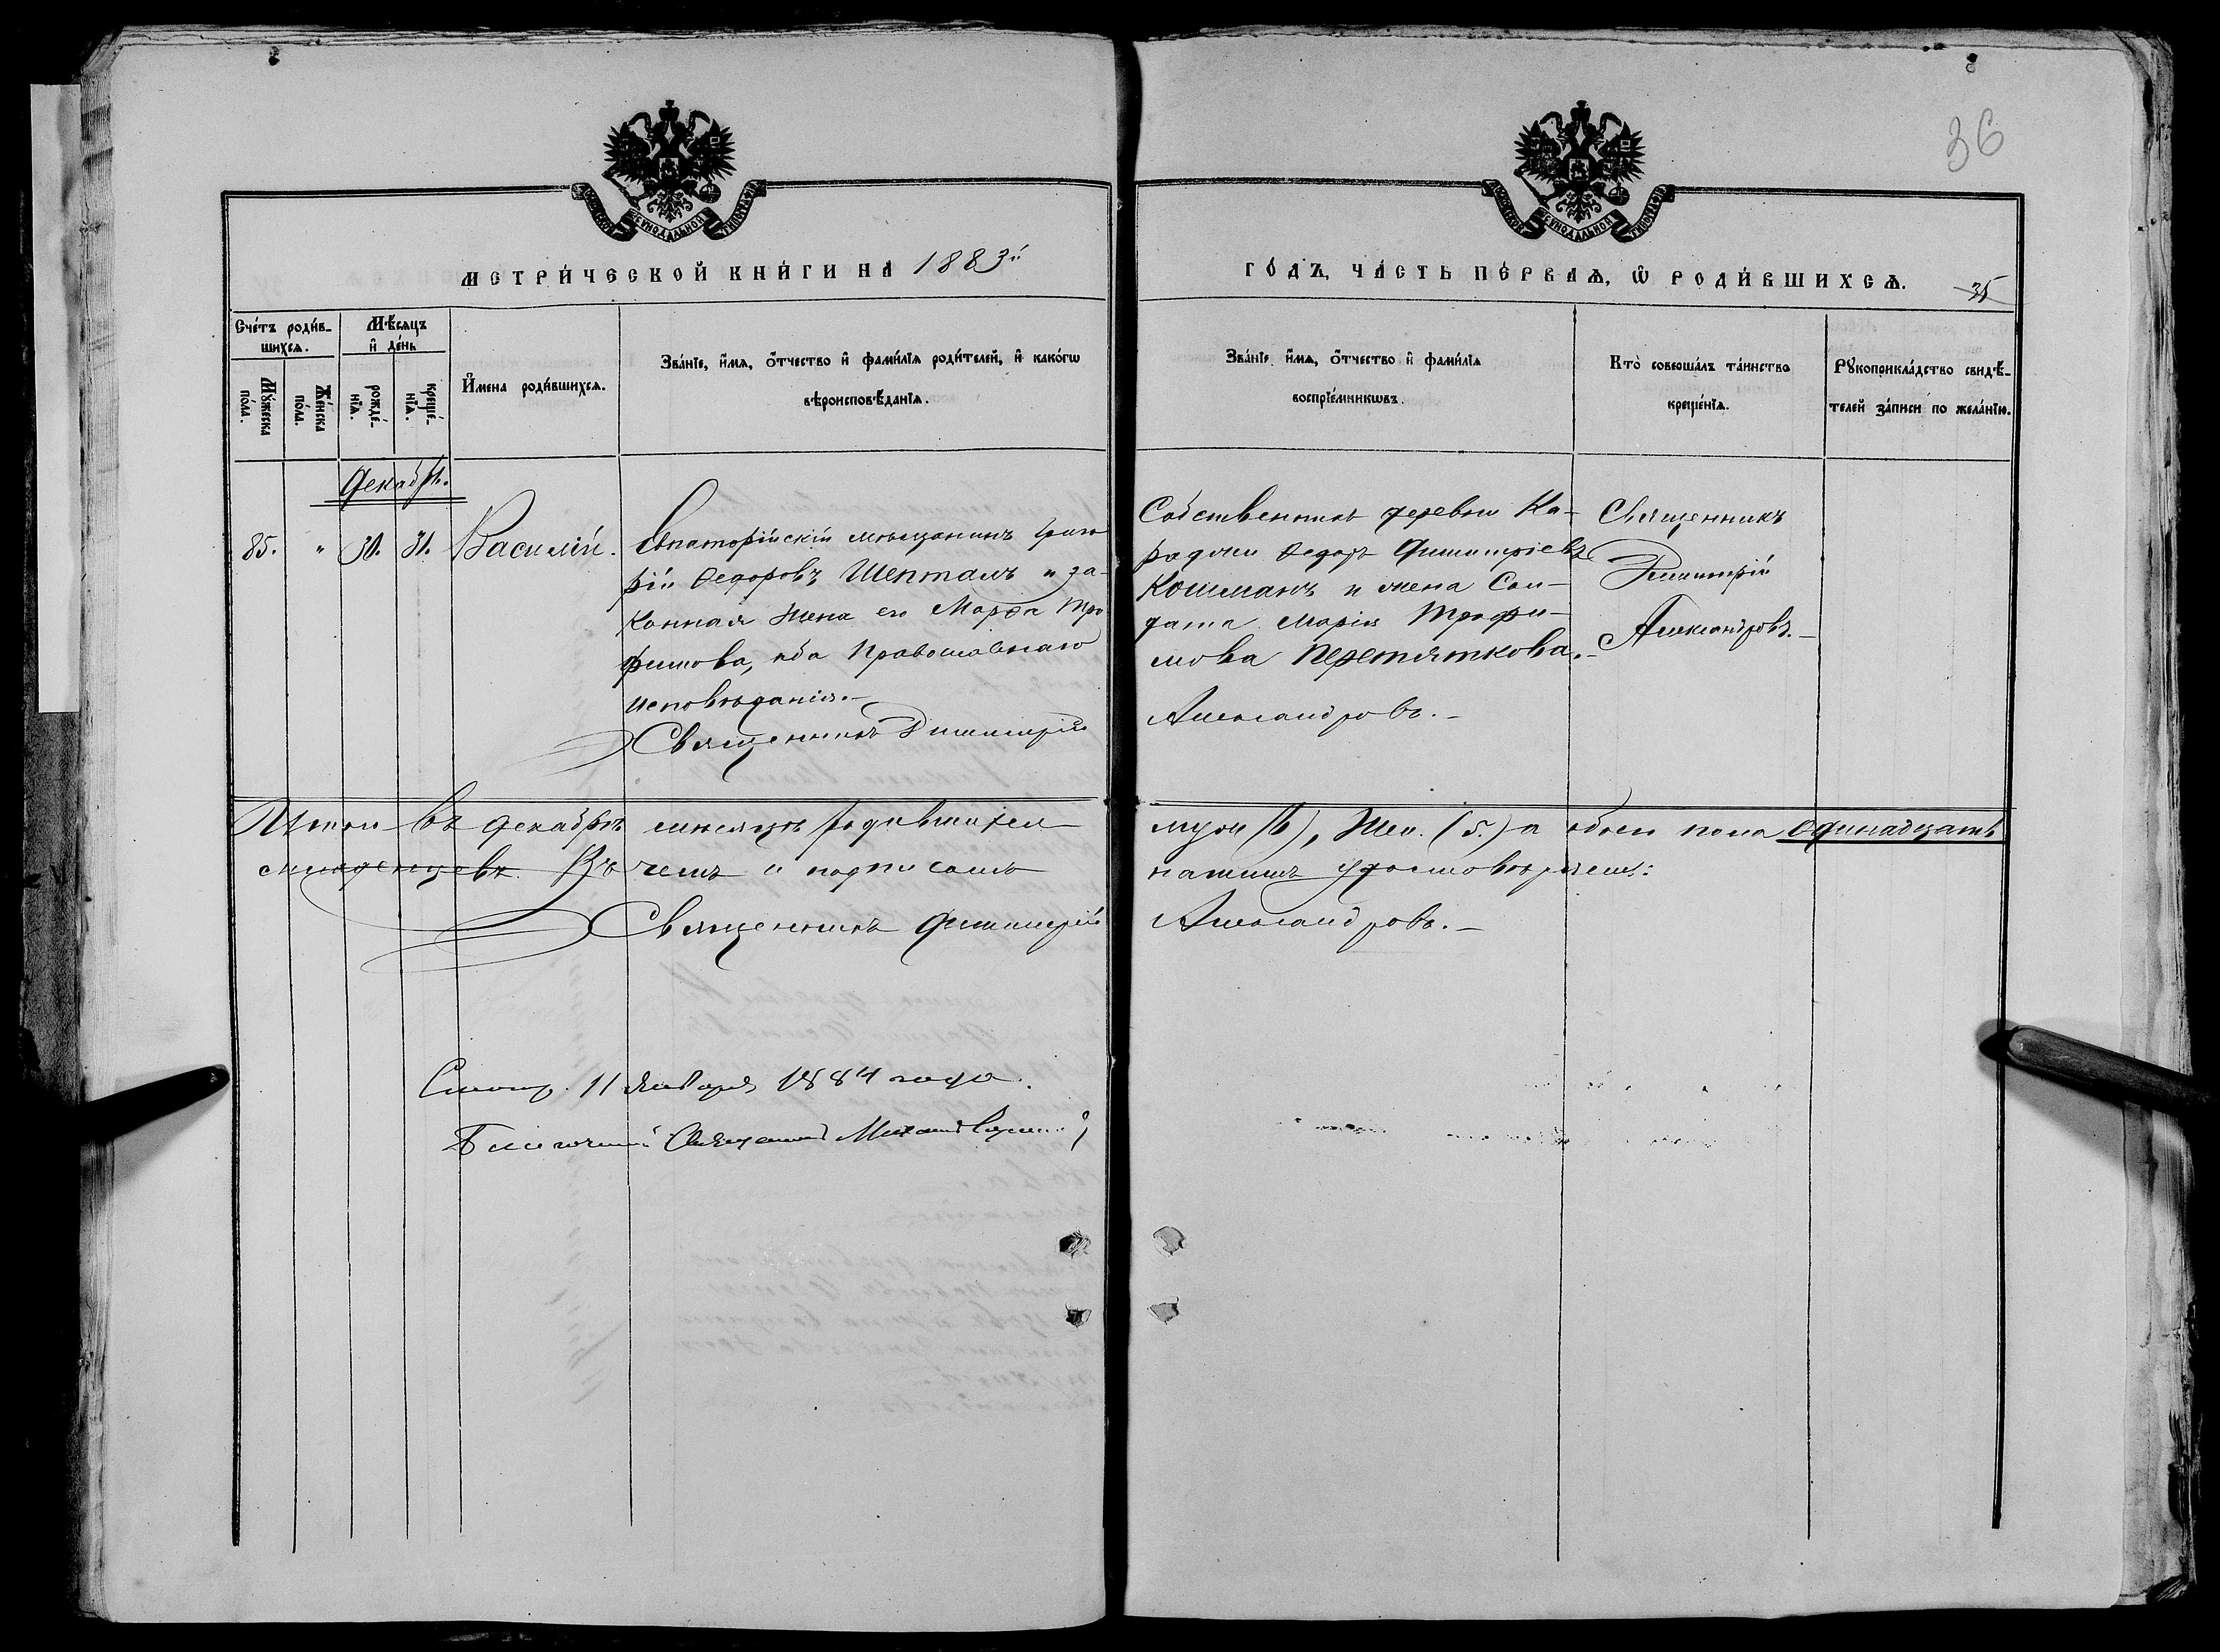 36
СѴНОДАЛЬНОЙ
СѴНОДАЛЬНОЙ
МЕТРИ́ЧЕСКОЙ КНИ́ГИ НА 1883й
ГО́ДЪ, ЧА́СТЬ ПЕ́РВАѦ, Ѡ҆ РОДИ́ВШИХСѦ.
35
Сче́тъ роди́в-
шихсѧ.
Мꙋ́жеска
по́ла.
Же́нска
по́ла.
Мѣ́сѧцъ
и҆ де́нь
рожде́-
нїѧ.
креще́-
нїѧ.
И҆мена роди́вшихсѧ.
Зва́нїе, и҆́мѧ, ѻ҆́тчество и҆ фами́лїѧ роди́телей, и҆ како́гѡ
вѣроисповѣ́данїѧ.
Зва́нїе, и҆́мѧ, ѻ҆́тчество и҆ фами́лїѧ
воспрїе́мникѡвъ.
Кто̀ соверша́лъ та́инство
креще́нїѧ.
Рꙋкоприкла́дство свидѣ́-
телей за́писи по жела́нїю.
Декабрь.
85. " 30. 31. Василій.
Евпаторійскій мѣщанинъ Григо
рій Ѳедоровъ Шепталъ и за-
конная жена его Марѳа Тро
фимова, оба Православнаго
исповѣданія.-
Священникъ Димитрій
Собственникъ деревни Ка-
раджи Ѳедоръ Димитріевъ
Кошманъ и жена Сол-
дата Марія Трофи-
мова Перетяткова.-
Александровъ.-
Священникъ
Димитрій
Александровъ.-
Итого въ декабрѣ мѣсяцѣ родившихся
муж. (6), Жен. (5.) а обоего пола одинадцать
младенцевъ. Въ чемъ и подписомъ
нашимъ удостовѣряемъ:
Священникъ Димитрій
Александровъ.-
11 Января 1884 года.
Благочинный Священникъ Михаилъ